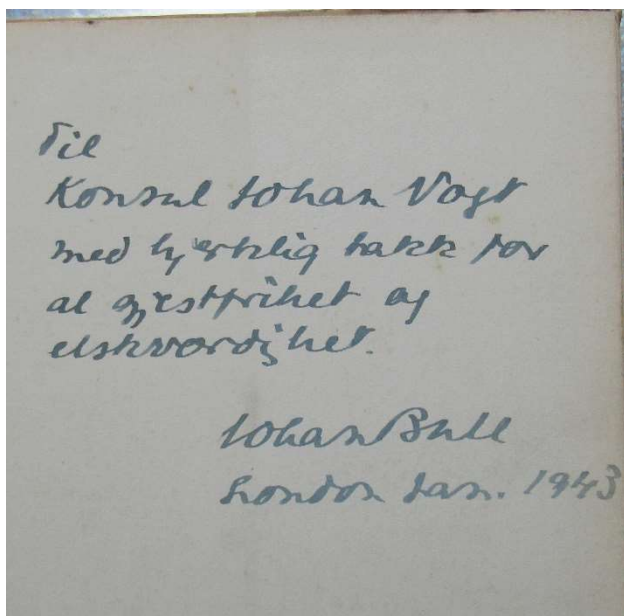 Til
Konsul Johan Vogt
med hjertelig takk for
al gjestfrihet og
elskværdighet.
Johan Bull
London Jan. 1943